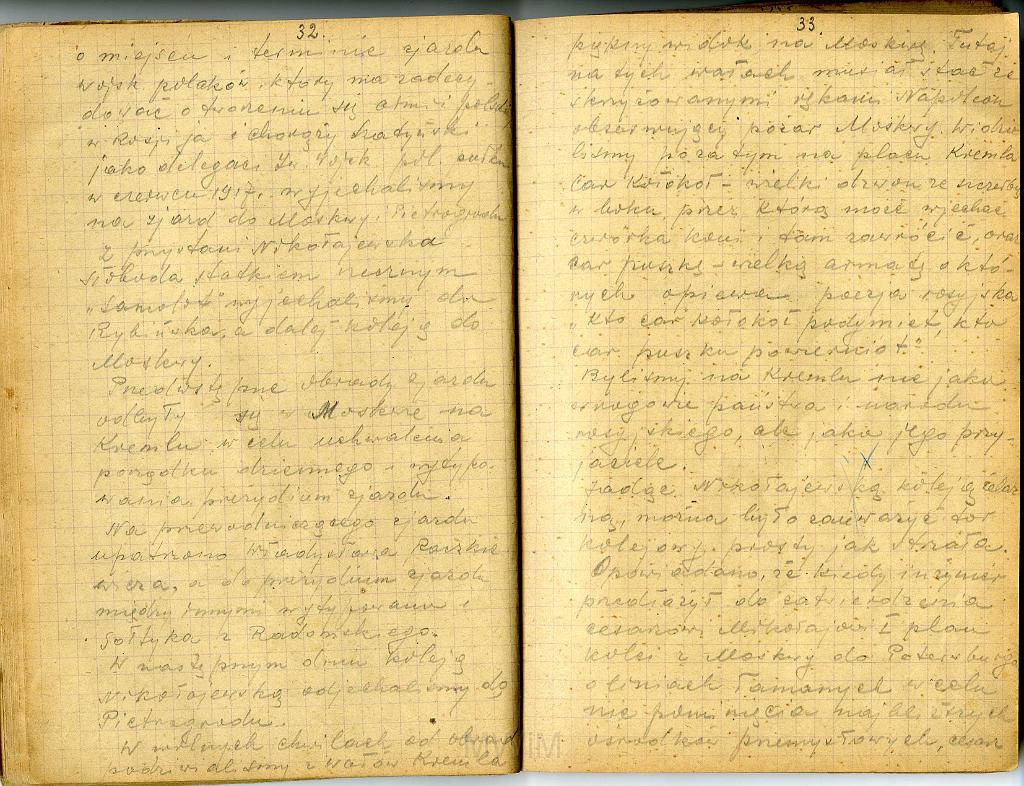 32
o miejscu i terminie zjazdu
wojsk polaków, który ma zadecy-
dować o tworzeniu się armii polsk
w Rosji ja i chorąży Szatyński
jako delegaci Zw. Wojsk pol.
w czerwcu 1917 r. wyjechaliśmy
na zjazd do Moskwy i Pietrogrodu
Z przystani Nikołajewska
słoboda statkiem rzecznym
„Samolot" wyjechaliśmy do
Rybińska, a dalej koleją do
Moskwy.
Przedwstępne obrady zjazdu
odbyły się w Moskwie na
Kremlu w celu uchwalenia
porządku dziennego i wytypo-
wania prezydium zjazdu.
Na przewodniczącego zjazdu
upatrzono Władysława Raczkie
wicza, a do prezydium zjazdu
między innymi wytypowano i
Sołtyka z Radomskiego.
W następnym dniu koleją
Nikołajewską odjechaliśmy do
Pietrogrodu.
W wolnych chwilach od obrad
podziwialiśmy z wałów Kremla
33.
piękny widok na Moskwę. Tutaj
na tych wałach musiał stać ze
skrzyżowanymi rękami Napoleon
obserwujący pożar Moskwy. Widzie
liśmy poza tym na placu Kremla
Car Kołokoł - wielki dzwon ze szczerbą
w boku, przez którą może wjechać
czwórka koni i tam zawrócić, oraz
car puszkę - wielką armatę o któ-
rych opiewa poezja rosyjska
„Kto car kołokoł podymiet, kto
car puszku powierniot."
Byliśmy na Kremlu nie jako
wrogowie państwa i narodu
rosyjskiego, ale jako jego przy-
jaciele.
Jadąc Nikołajewską koleją żelaz
ną, można było zauważyć tor
kolejowy prosty jak strzała.
Opowiadano, że kiedy inżynier
przedłożył do zatwierdzenia
cesarzowi Mikołajowi I plan
kolei z Moskwy do Petersburga
o liniach łamanych w celu
nie pominięcia najbliższych
ośrodków przemysłowych, cesarz